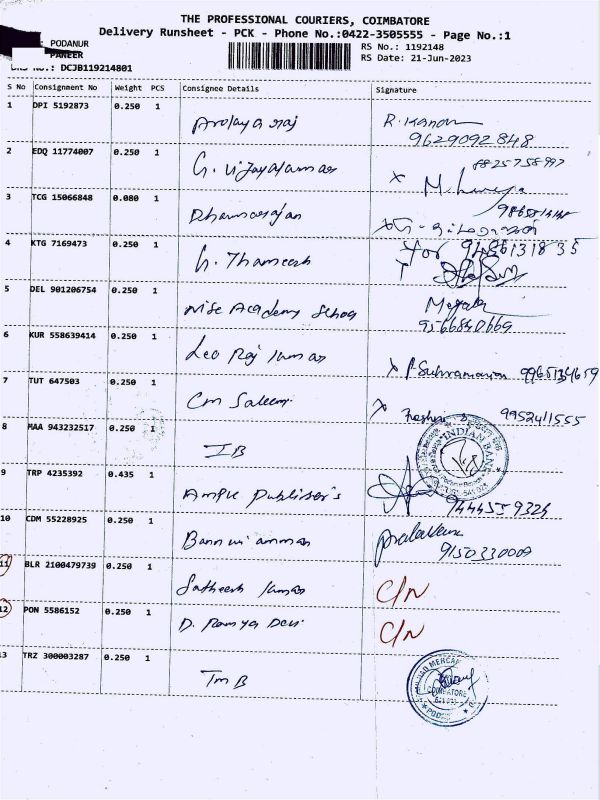 THE PROFESSIONAL COURIERS, COIMBATORE
Delivery Runsheet - PCK - Phone No.:0422-3505555 - Page No.:1
: PODANUR
RS No.: 1192148
PANEER
RS Date: 21-Jun-2023
No.: DCJB119214801
S No Consignment No Weight PCS Consignee Details Signature
1 DPI 5192873 0.250 1 Arolaya raj R. Kanan
9629092848
2 EDQ 11774007 0.250 1 G. Vijayalamar
8825758997
3 TCG 15066848 0.080 1 Dharmarajan
4 KTG 7169473 0.250 1 G. Thameesh
for 9486131835
5 DEL 901206754 0.250 1 Wise Academy School
9566840669
6 KUR 558639414 0.250 1 Leo Raj kumar
x P. Subramanian 9965134659
7 TUT 647503 0.250 1 Cm Saleem
x Reshni S 9952411555
8 MAA 943232517 0.250 1 IB
INDIAN BANK
9 TRP 4235392 0.435 1 Ample Publisher's
9444559324
10 CDM 55228925 0.250 1 Bannari amman
9150330009
11 BLR 2100479739 0.250 1 Satheesh kumar C/N
12 PON 5586152 0.250 1 D. Ramya Devi C/N
13 TRZ 300003287 0.250 1 TMB
COIMBATORE